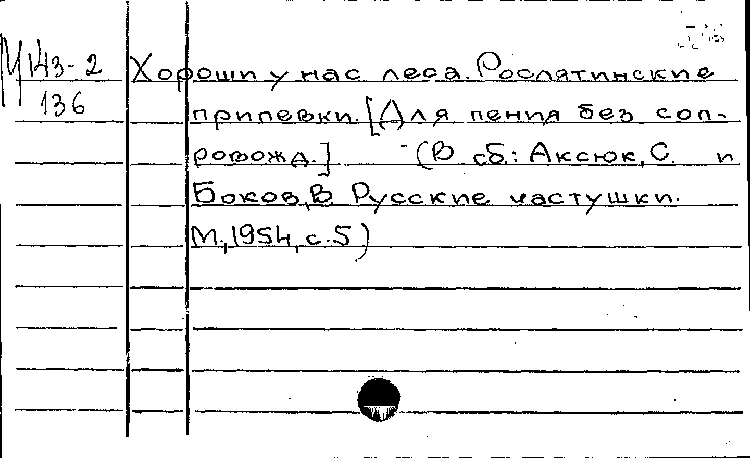 М 143-2 Хороши у нас леса. Рослятинские
136 припевки. [Для пения без соп-
ровожд.] - (В сб.: Аксюк, С. и
Боков, В. Русские частушки.
М., 1954, с. 5)